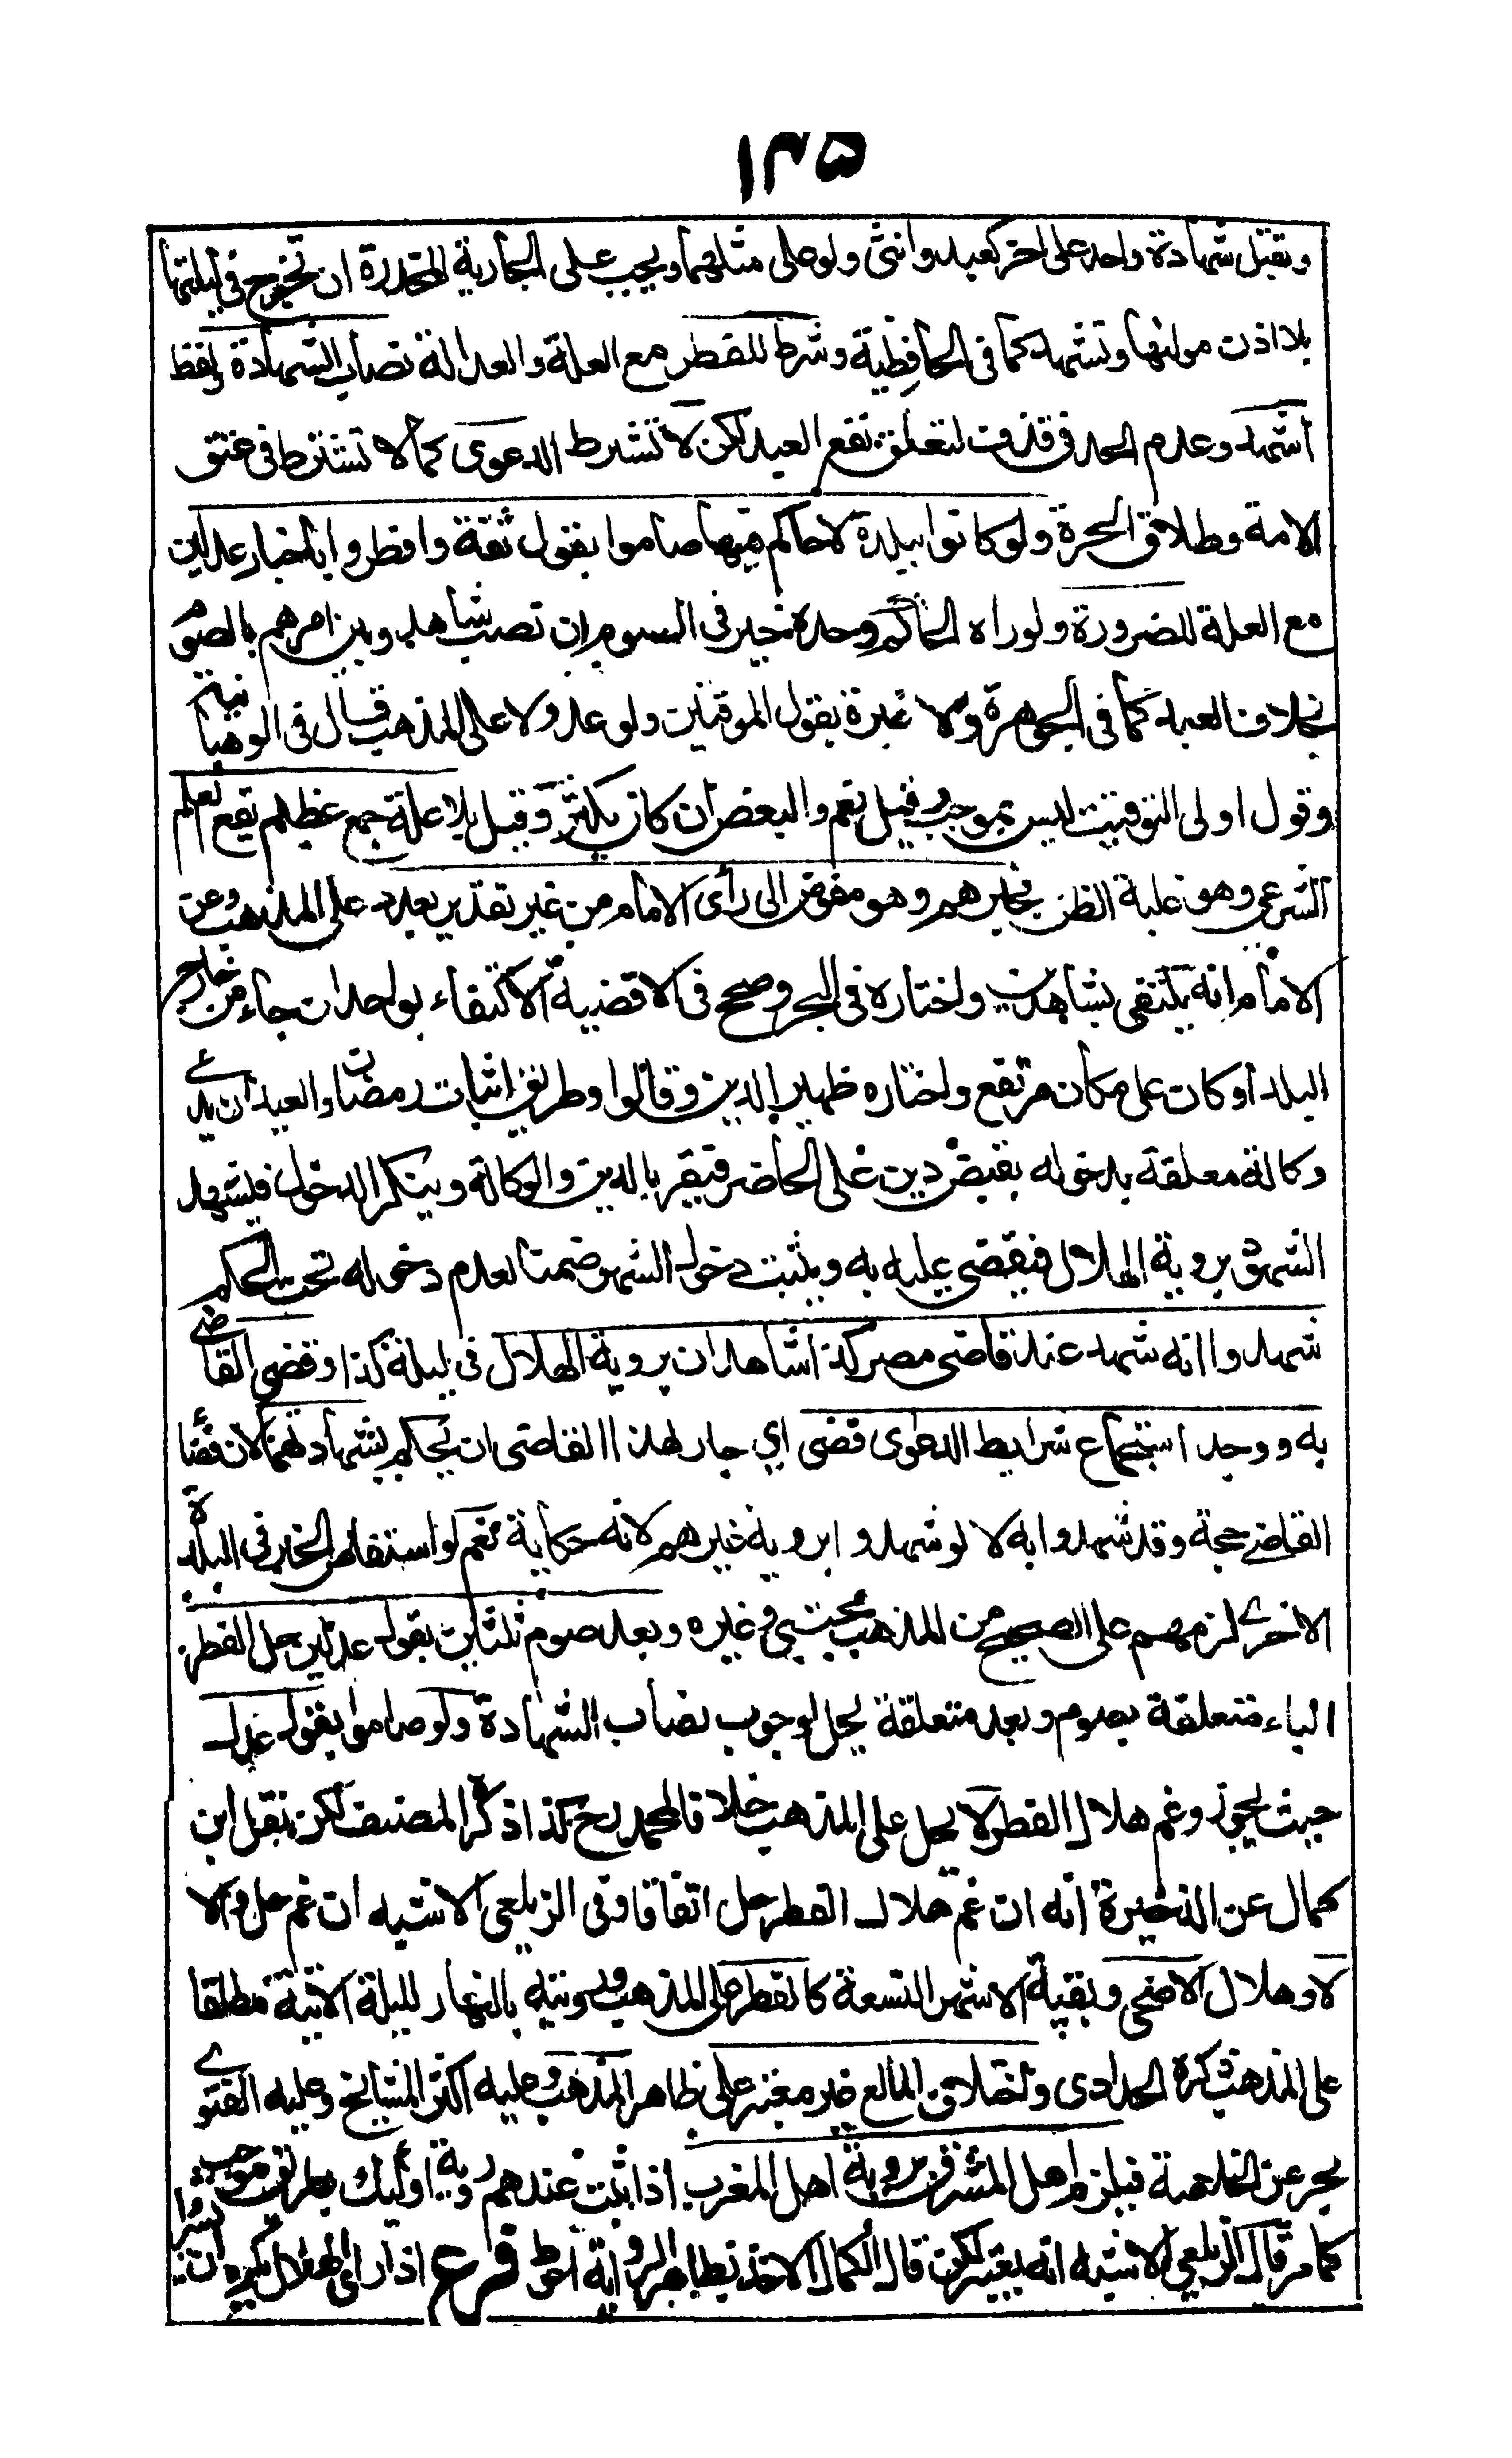 ١٣٥
وتقبل شهادة واحد على اخر كعبد وانثى ولو على مثلهما ويجب على الجارية المخدرة ان تخرج فى ليلتها
بلا اذن مولٰها وتشهد كما فى الحافظية وشرط للفطر مع العلة والعدالة نصاب الشهادة ولفظ
اشهد وعدم الحد فى قذف لتعلق نفع العبد لكن لا تشترط الدعوى كما لا تشترط فى عتق
الامة وطلاق الحرة ولو كانوا ببلدة لا حاكم فيها صاموا بقول ثقة وافطروا باخبار عدلين
مع العلة للضرورة ولو راه الحاكم وحده خير فى الصوم بين نصب شاهد وبين امرهم بالصوم
بخلاف العيد كما فى الجوهرة ولا عبرة بقول الموقتين ولو عدولا على المذهب قال فى الوهبانية
وقول اولى التوقيت ليس بموجب وقيل نعم والبعض ان كان يكثر وقيل بلا علة جمع عظيم يقع العلم
الشرعى وهو غلبة الظن بخبرهم وهو مفوض الى رأى الامام من غير تقدير بعدد على المذهب وعن
الامام انه يكتفى بشاهدين واختاره فى البحر وصحح فى الاقضية الاكتفاء بواحد ان جاء من خارج
البلد او كان على مكان مرتفع واختاره ظهير الدين وقالوا وطريق اثبات رمضان والعيد ان يدعے
وكالة معلقة بدخوله بقبض دين على الحاضر فيقر بالدين والوكالة وينكر الدخول فيشهد
الشهود بروية الهلال فيقضى عليه به ويثبت دخول الشهر ضمنا لعدم دخوله تحت الحكم
شهدوا انه شهد عند قاضى مصر كذا شاهدان بروية الهلال فى ليلة كذا وقضى القاضے
به ووجد استجماع شرايط الدعوى قضى اي جاز لهذا القاضى ان يحكم بشهادتهما لان قضاء
القاضے حجة وقد شهدوا به لا لو شهدوا بروية غيرهم لانه حكاية نعم لو استفاض الخبر فى البلدة
الاخرے لزمهم على الصحيح من المذهب مجتبى وغيره وبعد صوم ثلثين بقول عدلين حل الفطر
الباء متعلقة بصوم وبعد متعلقة بحل لوجوب نصاب الشهادة ولو صاموا بقول عدل
حيث يجوز وغم هلال الفطر لا يحل على المذهب خلافا لمحمد رح كذا ذكره المصنف لكن نقل ابن
كمال عن الذخيرة انه ان غم هلال الفطر حل اتفاقا وفى الزيلعى الاشبه ان غم حل والا
لا وهلال الاضحى وبقية الاشهر التسعة كالفطر على المذهب ورويته بالنهار لليلة الاتية مطلقا
على المذهب ذكره الحدادى واختلاف المطالع غير معتبر على ظاهر المذهب وعليه اكثر المشايخ وعليه الفتوے
بحر عن الخلاصة فيلزم اهل المشرق بروية اهل المغرب اذا ثبت عندهم روية اولئك بطريق موجب
كما مر قال الزيلعى الاشبه انه يعتبر لكن قال الكمال الاخذ بظاهر الرواية احوط فرع اذا راى الهلال يكره ان يشيروا